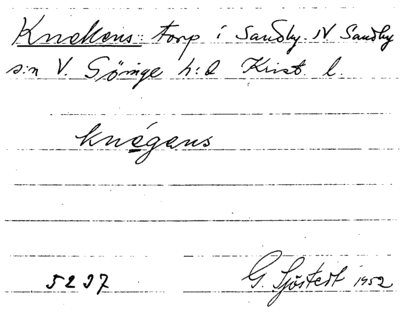 Knekens: torp i Sandby. N Sandby
s:n V. Göinge h:d Krist. l.
knégens
5237 G. Sjöstedt 1952